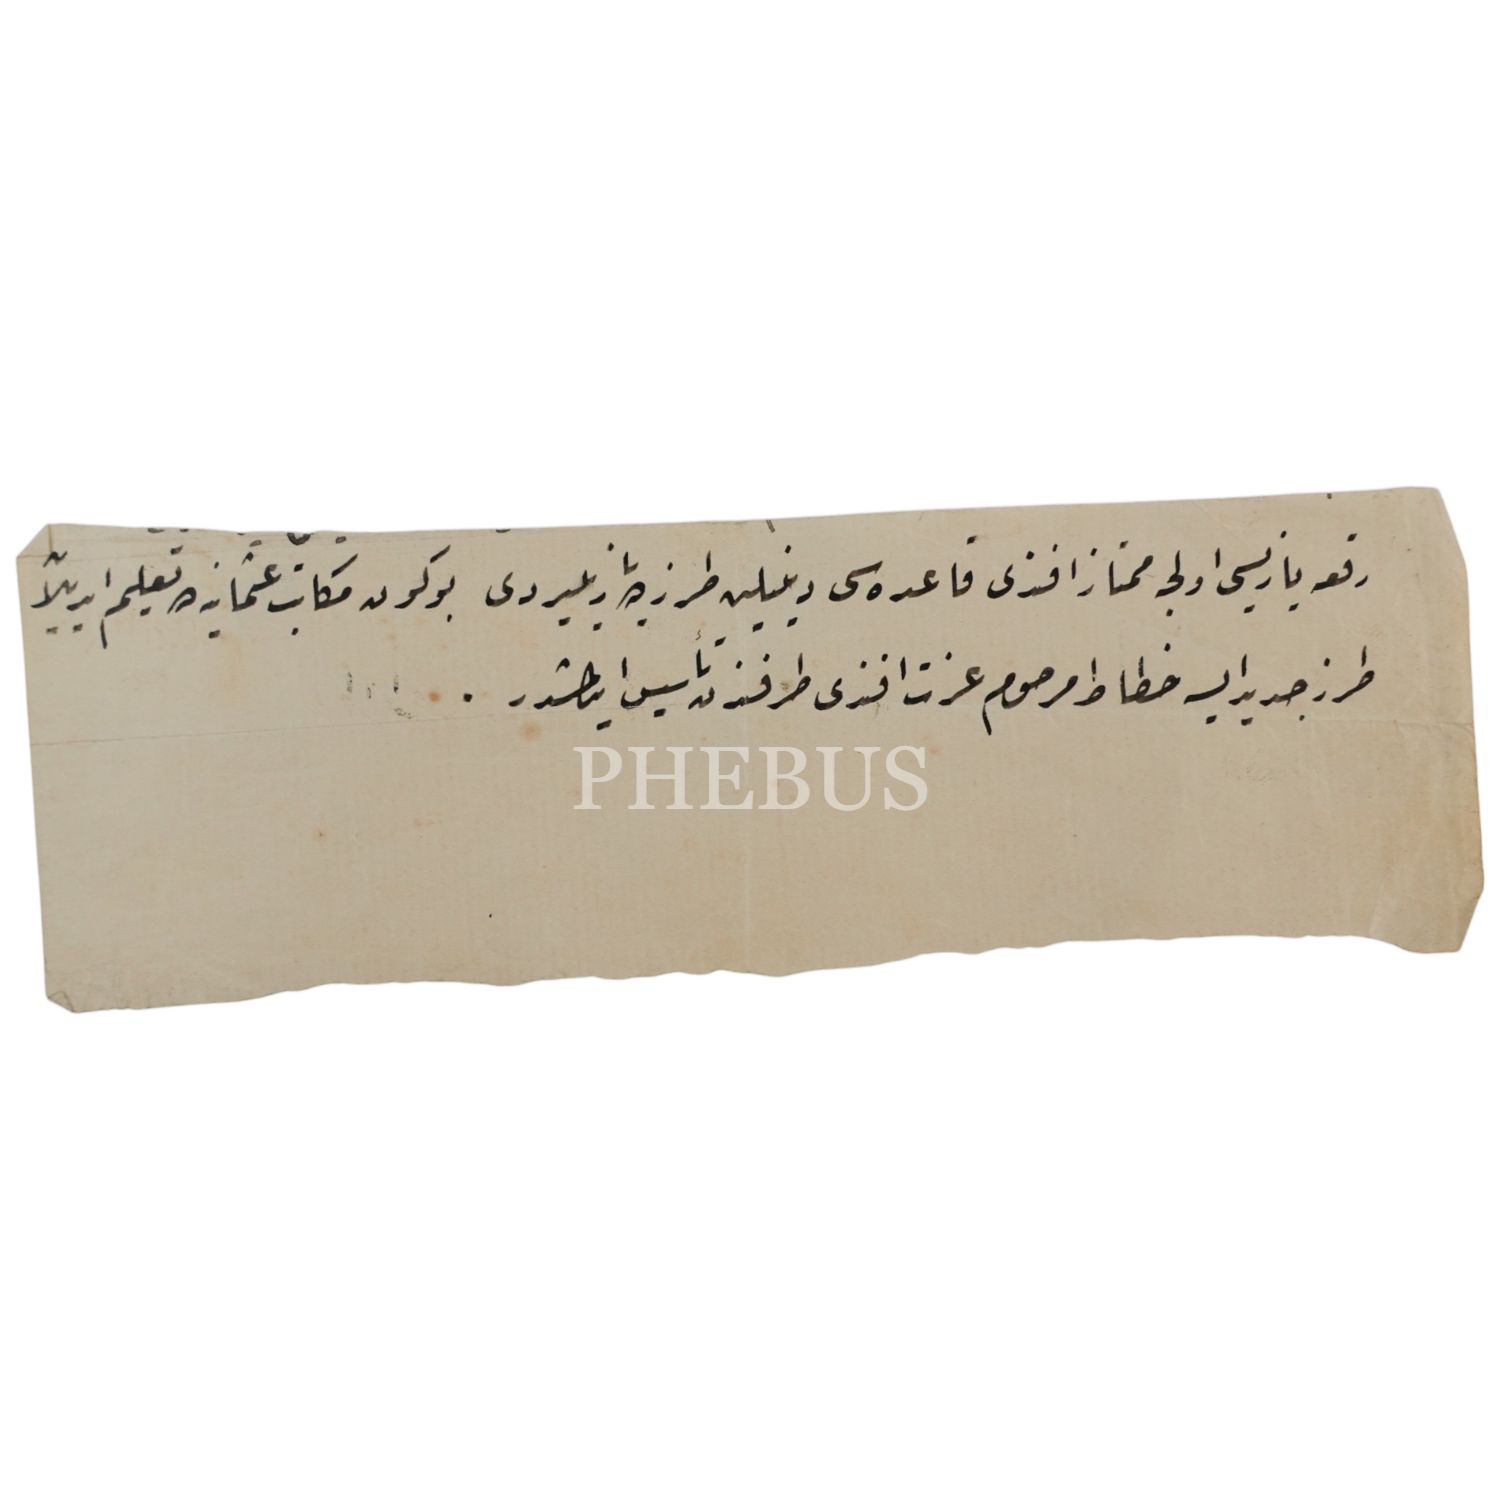 رقعه یازیسی اولجه ممتاز افندی قاعده‌سی دینیلین طرزده یازیلیردی بوکون مکاتب عثمانیه‌ده تعلیم ایدیلن
طرز جدید ایسه خطاط مرحوم عزت افندی طرفندن تأسیس ایتمشدر .
PHEBUS